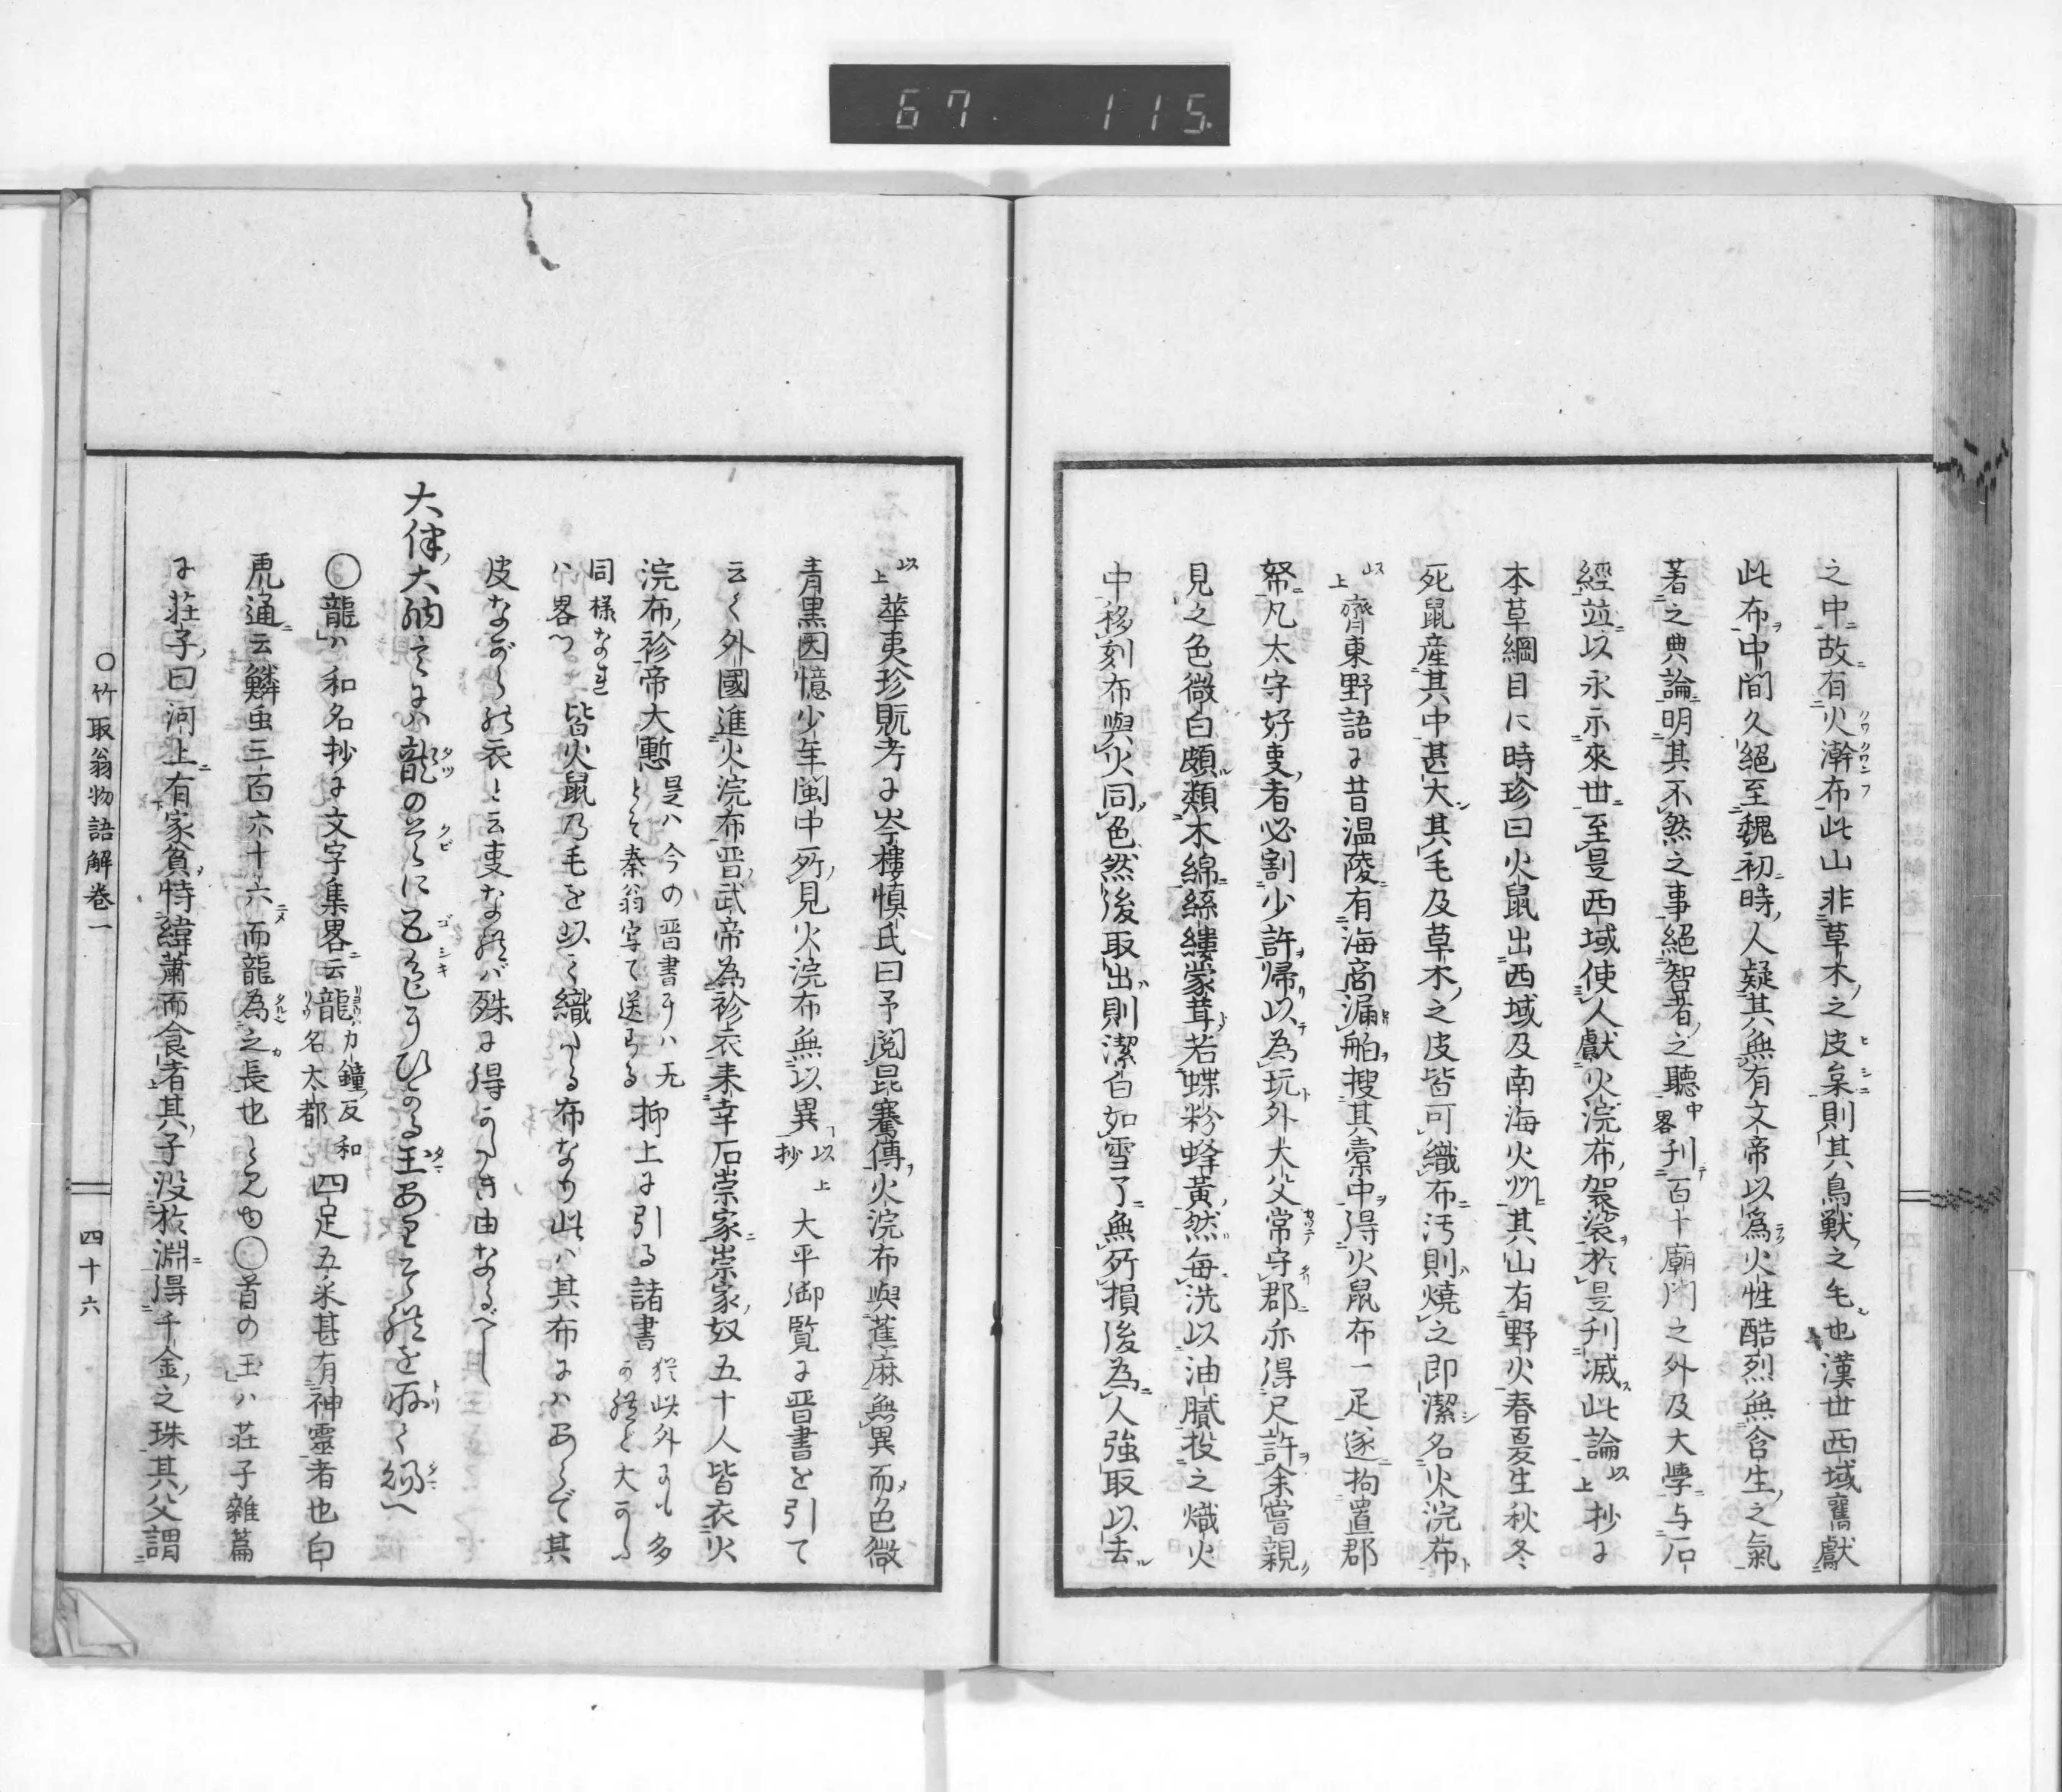 67. 115.
之中故有火澣布此山非草木之皮枲則其鳥獸之毛也漢世西域舊獻
此布中間久絕至魏初時人疑其無有文帝以爲火性酷烈無含生之氣
著之典論明其不然之事絕智者之聽中畧刋百十廟門之外及大學与石
經竝以永示來世至是西域使人獻火浣布袈裟於是刋滅此論以上抄に
本草綱目に時珍曰火鼠出西域及南海火州其山有野火春夏生秋冬
死鼠産其中甚大其毛及草木之皮皆可織布汚則燒之即潔名火浣布
以上齊東野語に昔温陵有海商漏舶搜其橐中得火鼠布一疋遂拘置郡
帑凡太守好叓者必割少許帰以為玩外大父常守郡亦得尺許余嘗親
見之色微白頗類木綿絲縷蒙茸若蝶粉蜂黃然每洗以油膩投之熾火
中移刻布與火同色然後取出則潔白如雪了無所損後為人強取以去
以上華夷珍翫考に岑樓慎氏曰予閲昆騫傳火浣布與蕉麻無異而色微
青黒因憶少年閩中所見火浣布無以異以上抄大平御覧に晋書を引て
云く外國進火浣布晋武帝為袗衣来幸石崇家崇家奴五十人皆衣火
浣布袗帝大慙是ハ今の晋書ヲハ无とそ秦翁写て送らる抑上に引る諸書猶此外にも多かれと大かた
同様なれハ畧つ皆火鼠乃毛を以て織たる布なり此ハ其布にハあらで其
皮ながらの衣と云叓なれバ殊に得かたき由なるべし
大伴大納言にハ龍のくひに五色にひかる玉ありそれを取て給へ
○龍ハ和名抄に文字集畧云龍力鐘反和名太都四足五采甚有神靈者也白
虎通云鱗虫三百六十六而龍為之長也と見ゆ○首の玉ハ荘子雜篇
に荘子曰河上有家貧恃緯蕭而食者其子没於淵得千金之珠其父謂
○竹取翁物語解卷一
四十六